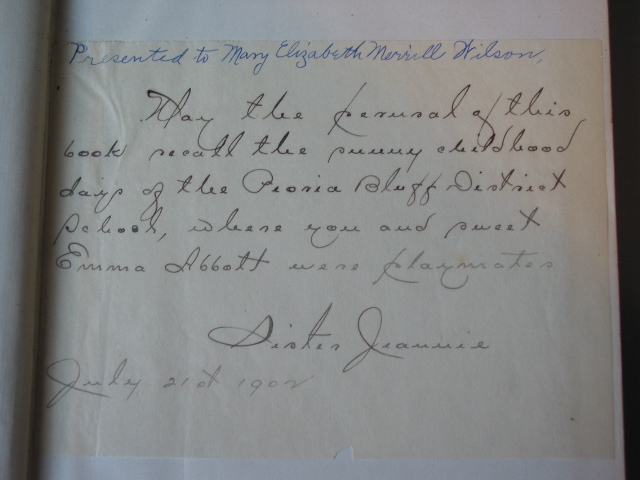 Presented to Mary Elizabeth Merrill Wilson,
May the perusal of this
book recall the sunny childhood
days of the Peoria Bluff District
School, where you and sweet
Emma Abbott were playmates
Sister Jeannie
July 21st 1902